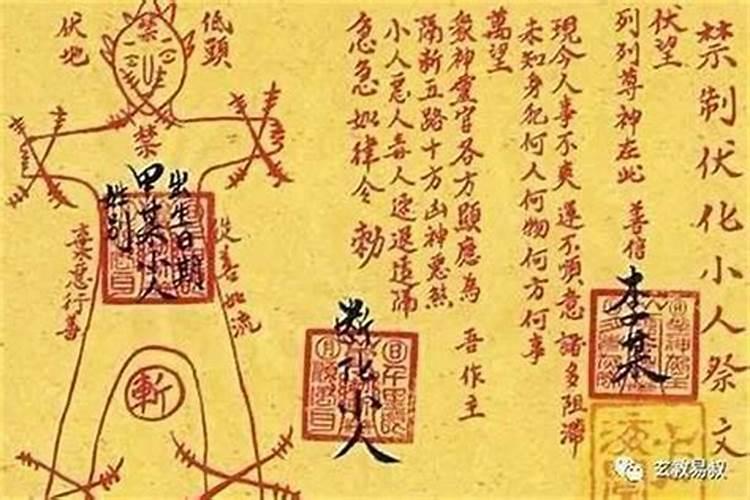 禁制伏化小人祭文
伏望
列列尊神在此 善信
李某
現今人事不爽運不順意諸多阻滯
未知身犯何人何物何方何事
萬望
衆神靈官各方顯應為 吾作主
隔斬五路十方凶神惡煞
小人惡人毒人速退遠隔
急急如律令 勅
斷化小人
低頭
伏地
禁
禁
出生日期
甲某小人
性別
從善如流
棄惡行善
斬
玄教易叔